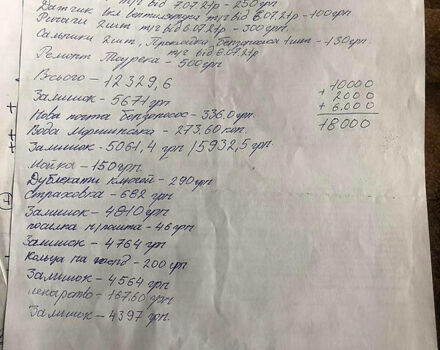 т/г від 7.07.21р - 250 грн
Датчик вкл вентилятора т/г від 6.07.21р - 100 грн
Рычаги 2 шт т/г від 6.07.21р - 300 грн.
2 шт, Прокладка бензонасоса 1 шт - 130 грн.
т/г від 6.07.21р
Ремонт - 500 грн
Всього - 12 329,6
Залишок - 5671 грн
Нова почта бензонасос - 336,0 грн
Вода - 273,60 коп.
Залишок - 5061,4 грн / 5932,5 грн
Мойка - 150 грн.
Дублекати ключей - 290 грн
Страховка - 682 грн
Залишок - 4810 грн
посилка н/пошта - 46 грн
Залишок - 4764 грн
Кольца на - 200 грн
Залишок - 4564 грн
Лекарство - 167.60 грн
Залишок - 4397 грн.
10000
+ 2000
+ 6.000
18000